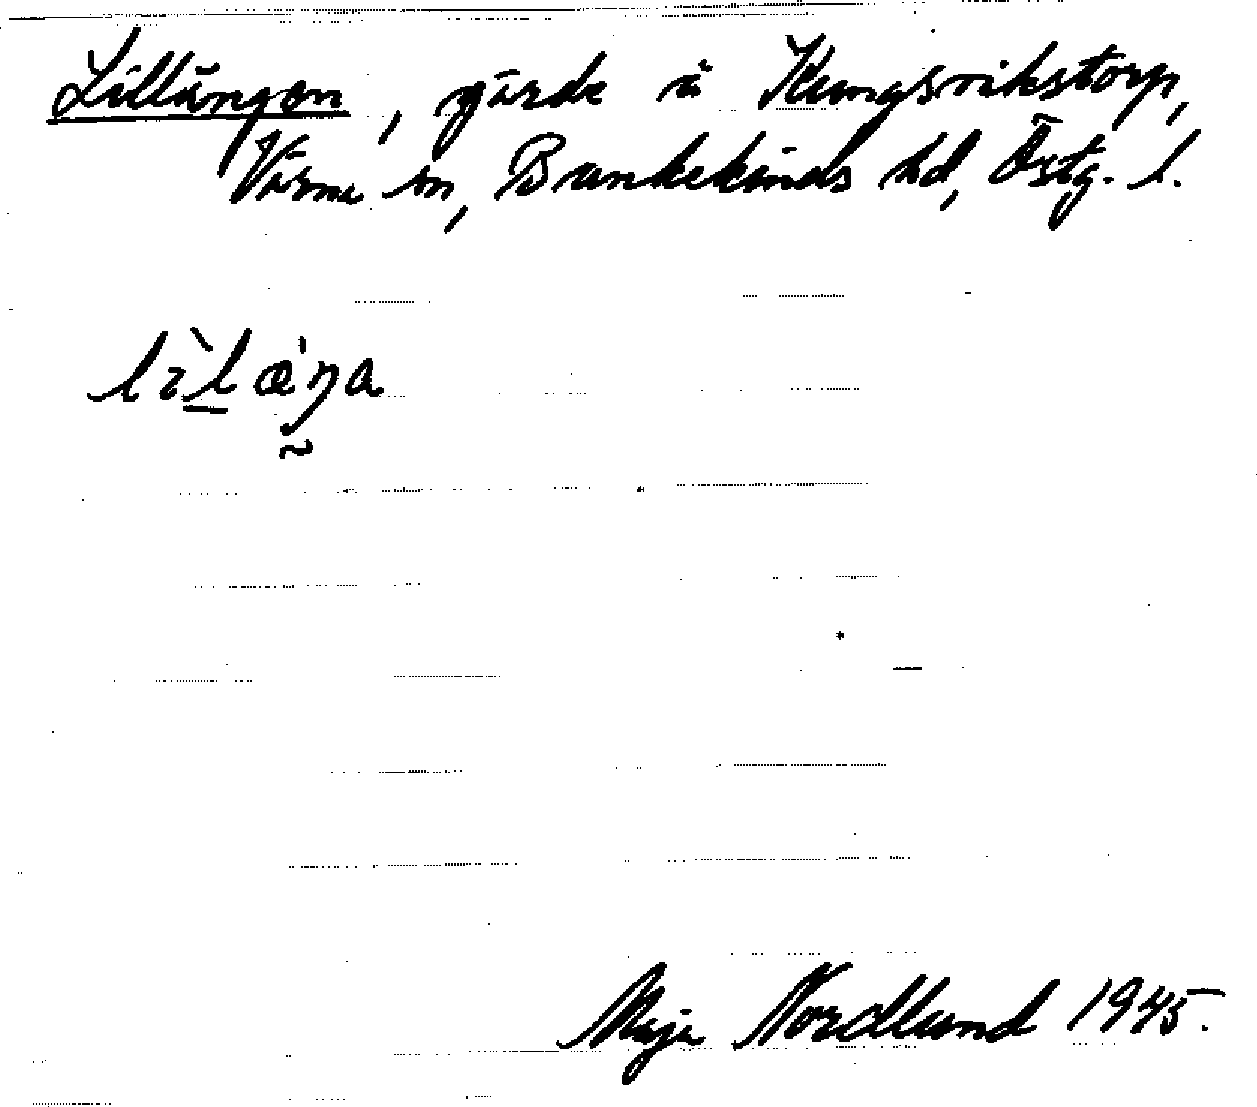 Lillängen, gärde i Kungsrikstorp,
Värna sn, Bankekinds hd, Östg. l.
lìlæ'ŋa
Maja Nordlund 1945.